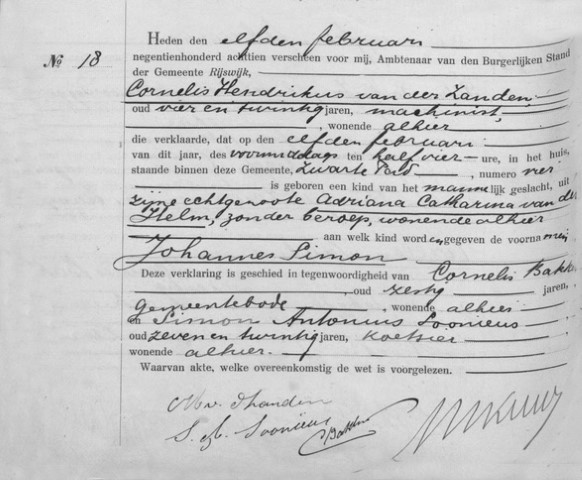 Nº 18
Heden den elfden februari
negentienhonderd achttien verscheen voor mij, Ambtenaar van den Burgerlijken Stand
der Gemeente Rijswijk,
Cornelis Hendrikus van der Zanden
oud vier en twintig jaren, machinist,
, wonende alhier
die verklaarde, dat op den elfden februari
van dit jaar, des voormiddags ten half vier ure, in het huis,
staande binnen deze Gemeente, Zwarte Pad, numero vier
is geboren een kind van het mannelijk geslacht, uit
zijne echtgenoote Adriana Catharina van der
Helm, zonder beroep, wonende alhier
aan welk kind word en gegeven de voorna men
Johannes Simon
Deze verklaring is geschied in tegenwoordigheid van Cornelis Bakker
, oud zestig jaren,
gemeentebode, wonende alhier
en Simon Antonius Soonieus
oud zeven en twintig jaren, koetsier
wonende alhier.
Waarvan akte, welke overeenkomstig de wet is voorgelezen.
S. A. Soonieus
C Bakker